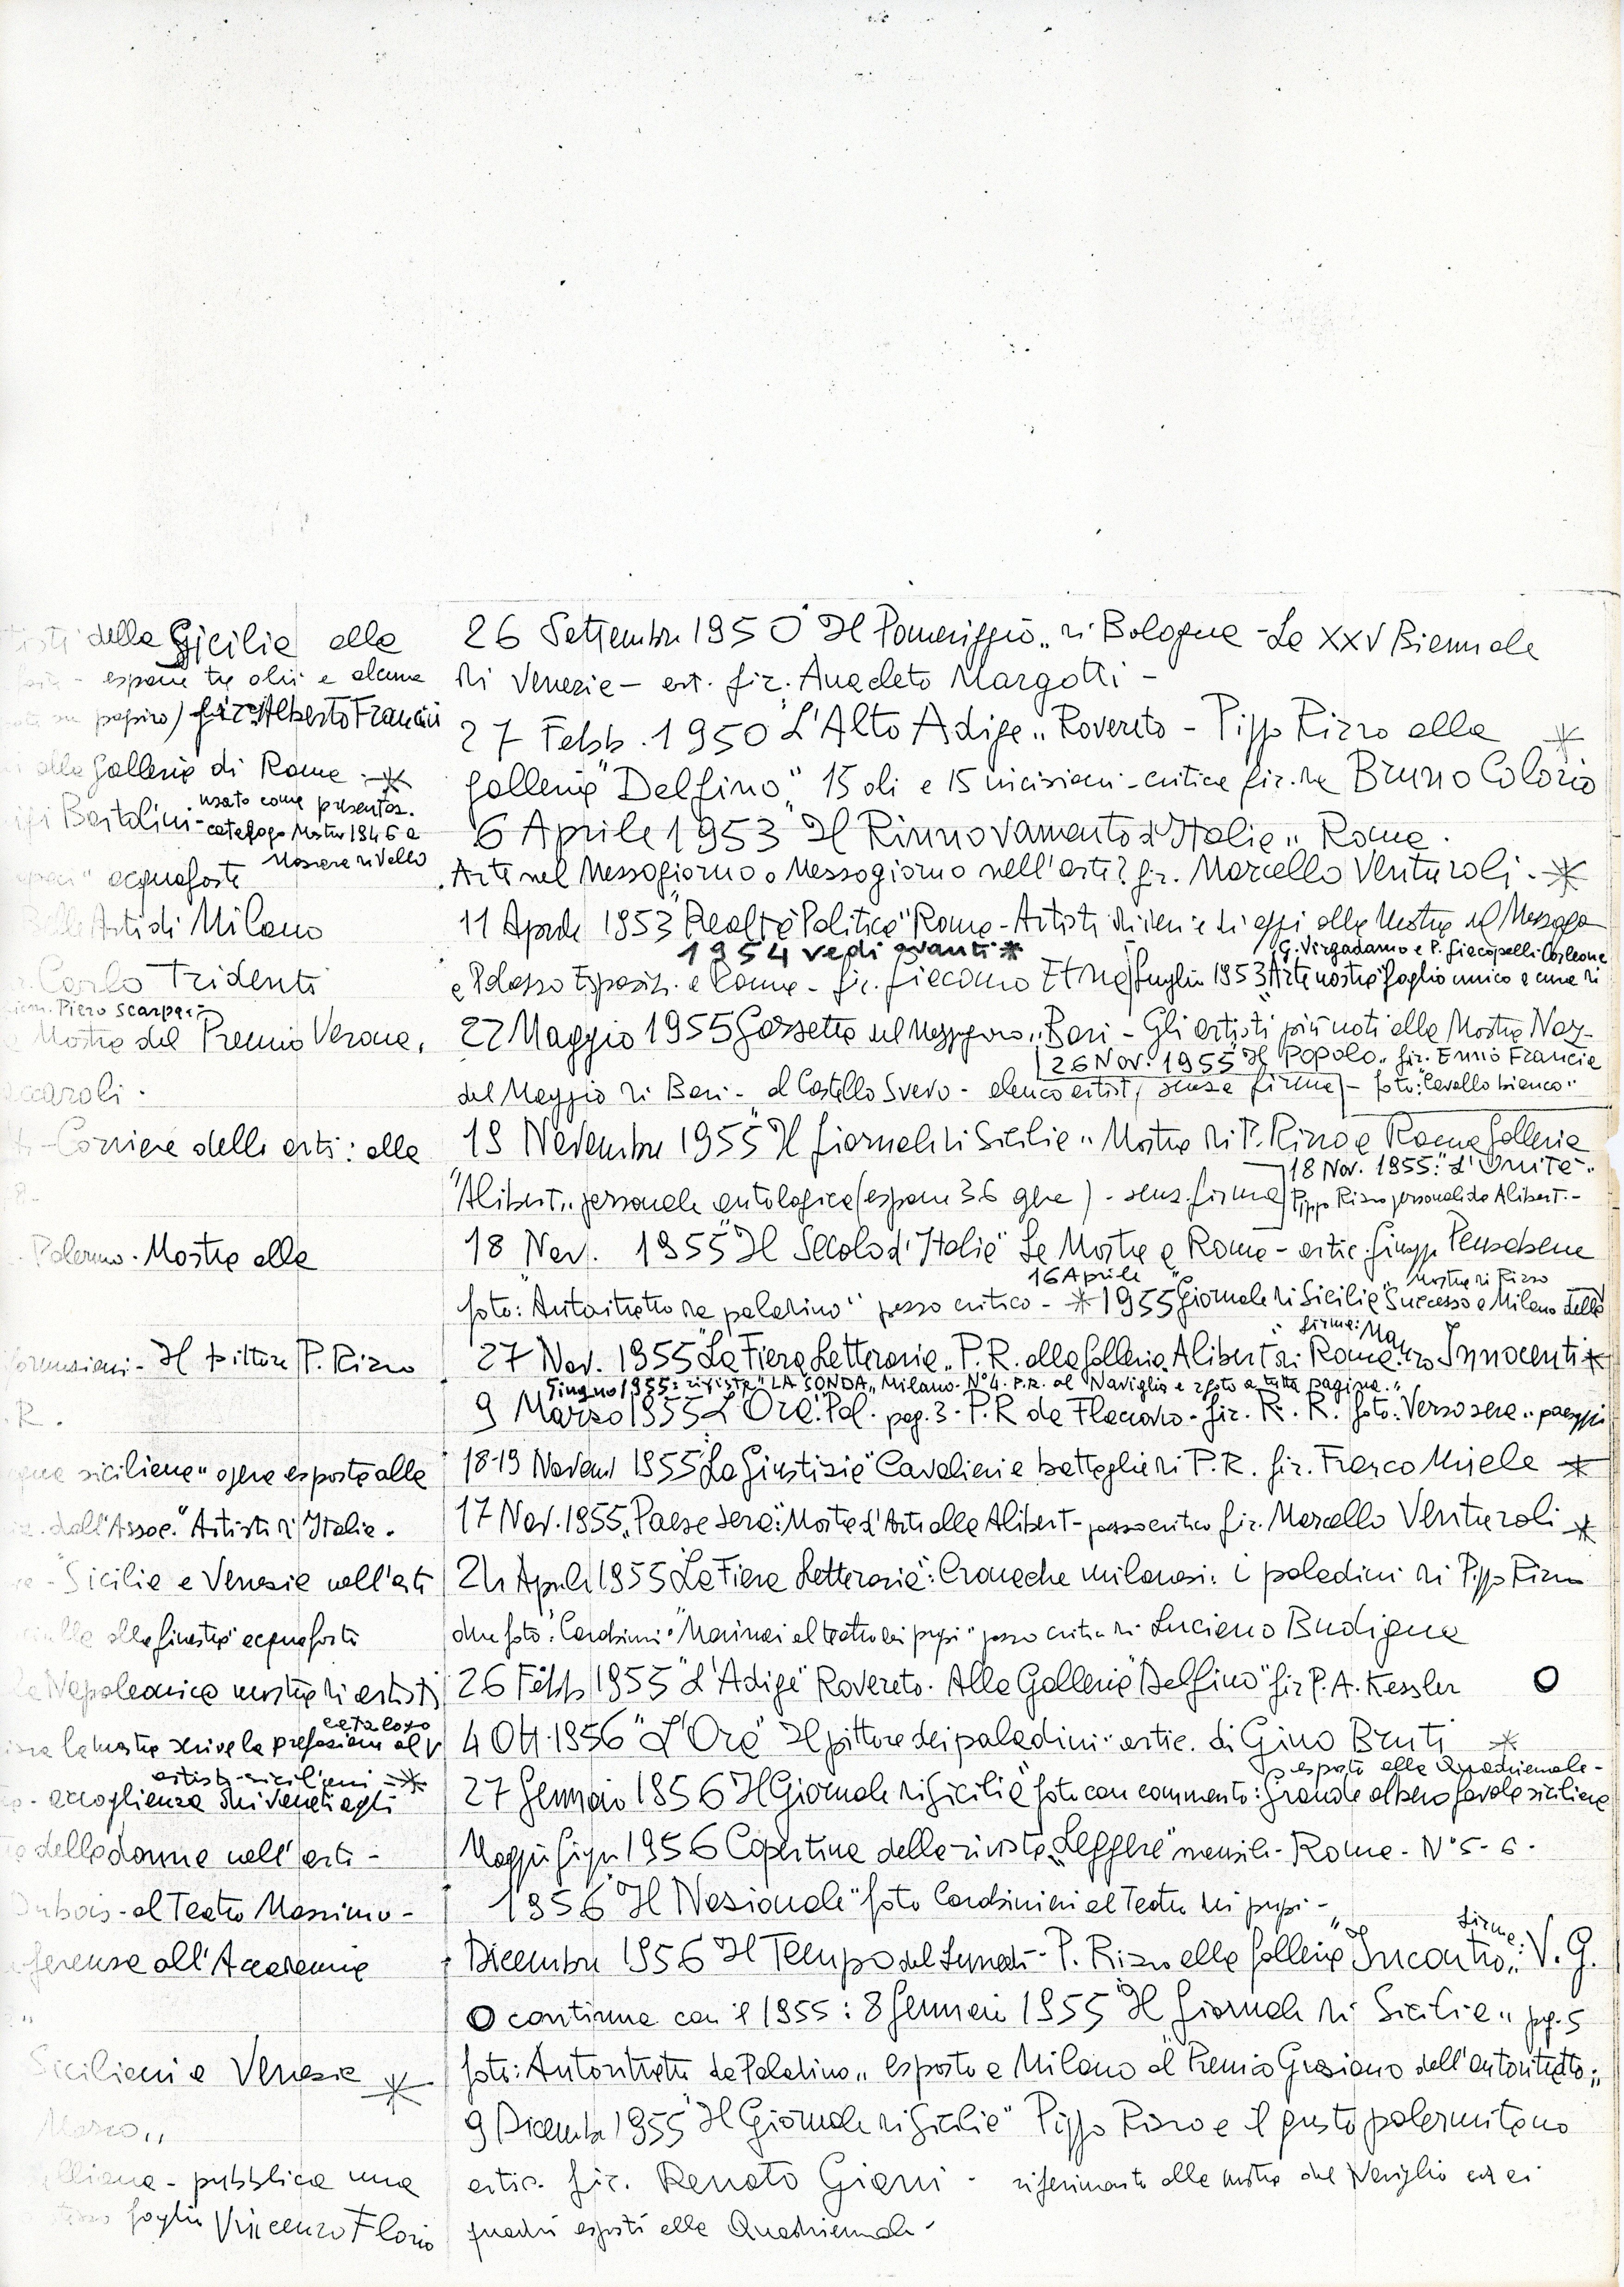 della Sicilia alla
espone tre olii e alcune
su papiro) fir. Alberto Francini
alla Galleria di Roma - *
Bartolini - usato come presentaz.
catalogo Mostra 1946 a
Mazara di Vallo
acqueforti
Belle Arti di Milano
Carlo Tridenti
Piero Scarpa -
Mostra del Premio Verona,
- Corriere delle arti: alla
Palermo. Mostra alla
- Il pittore P. Rizzo
R.
siciliana" opere esposte alla
dall'Assoc. "Artisti d'Italia.
- "Sicilia e Venezia nell'arte
alla finestra" acqueforti
Napoleonica mostra di artisti
la mostra scrive la prefazione al catalogo
artisti siciliani - *
- accoglienza dei veneti agli
delle donne nell'arte -
Dubois - al Teatro Massimo -
all'Accademia
Siciliani a Venezia *
Marzo"
- pubblica una
foglio Vincenzo Florio
26 Settembre 1950 "Il Pomeriggio" di Bologna - La XXV Biennale
di Venezia - art. fir. Anacleto Margotti -
27 Febb. 1950 "L'Alto Adige" Rovereto - Pippo Rizzo alla *
galleria "Delfino" 15 oli e 15 incisioni - critica fir. da Bruno Colorio
6 Aprile 1953 "Il Rinnovamento d'Italia" Roma.
Arte nel Mezzogiorno o Mezzogiorno nell'arte? fir. Marcello Venturoli. - *
11 Aprile 1953 "Realtà Politica" Roma - Artisti di ieri e di oggi alla Mostra del Mezzog
1954 vedi avanti *
G. Virgadamo e P. Giacopelli - Corleone
e Palazzo Esposiz. a Roma - fir. Giacomo Etna | Luglio 1953 "Arte nostra" foglio unico a cura di
22 Maggio 1955 Gazzetta del Mezzogiorno" Bari - Gli artisti più noti alla Mostra Naz-
26 Nov. 1955 "Il Popolo" fir. Ennio Francia
del Maggio di Bari - al Castello Svevo - elenco artisti, senza firma - foto: "Cavallo bianco"
19 Novembre 1955 "Il Giornale di Sicilia" Mostra di P. Rizzo a Roma Galleria
18 Nov. 1955: "L'Unità".
"Alibert" personale antologica (espone 36 opere) - senz. firma Pippo Rizzo personale da Alibert. -
18 Nov. 1955 "Il Secolo d'Italia" Le Mostre a Roma - artic. Giusepp. Pensabene
16 Aprile
Mostra di Rizzo
foto: "Autoritratto da paladino" pezzo critico - * 1955 "Giornale di Sicilia" Successo a Milano della
firma: Ma
27 Nov. 1955 "La Fiera Letteraria" P. R. alla Galleria Alibert di Roma. Innocenti *
Giugno 1955: rivista "LA SONDA" Milano. N° 4. P. R. al "Naviglio e 2 foto a tutta pagina."
9 Marzo 1955 "L'Ora". Pal. pag. 3 - P. R da Flaccovio - fir. R. R. foto: Verso sera"
18-19 Novem 1955 "La Giustizia" Cavalieri e battaglie di P. R. fir. Franco Miele *
17 Nov. 1955 "Paese Sera": Mostre d'Arte alla Alibert - pezzo critico fir. Marcello Venturoli *
24 Aprile 1955 "La Fiera Letteraria": Cronache milanesi: i paladini di Pippo Rizzo
due foto: "Carabinieri" "Marinai al teatro dei pupi" pezzo critico di Luciano Budigna
26 Febb 1955 "L'Adige" Rovereto. Alla Galleria "Delfino" fir P. A. Kessler O
4 Ott. 1956 "L'Ora" Il pittore dei paladini - artic. di Gino Bruti *
esposto alla Quadriennale -
27 Gennaio 1956 "Il Giornale di Sicilia" foto con commento: Grande albero favole siciliane
Maggio Giugn 1956 Copertina della rivista "Leggere" mensile - Roma - N° 5 - 6 -
1956 "Il Nazionale" foto Carabinieri al Teatro dei pupi -
Dicembre 1956 Il Tempo del Lunedì - P. Rizzo alla Galleria "Incontro" firma: V. G.
O continua con il 1955: 8 Gennaio 1955 "Il Giornale di Sicilia" pag. 5
foto: Autoritratto da Paladino" esposto a Milano al "Premio Graziano dell'autoritratto"
9 Dicembre 1955 "Il Giornale di Sicilia" Pippo Rizzo e il gusto palermitano
artic. fir. Renato Giani - riferimento alla mostra del Naviglio ed ai
quadri esposti alla Quadriennale -